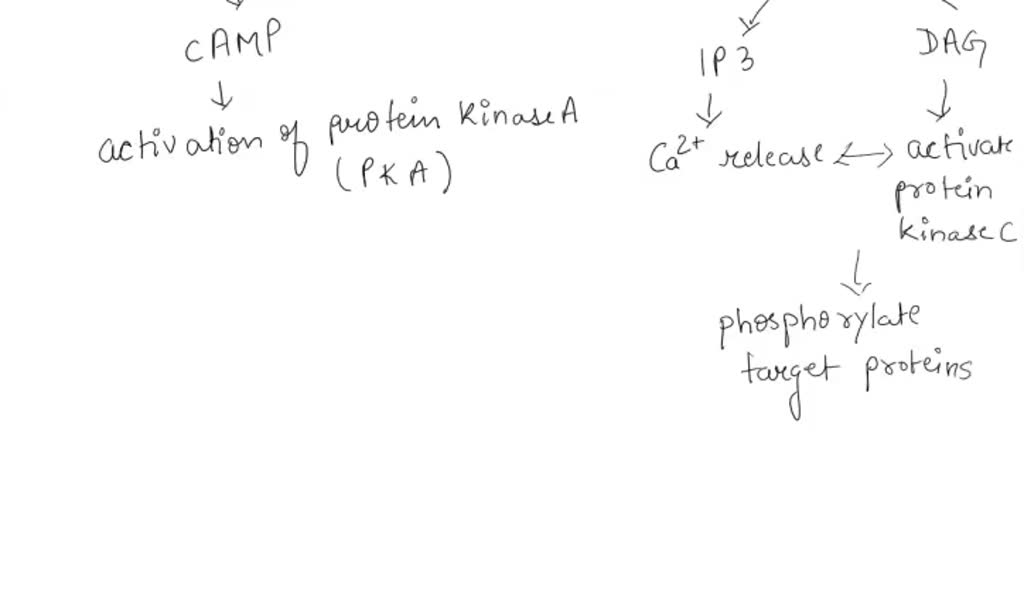 cAMP
activation of protein kinase A
(PKA)
IP3
DAG
Ca2+ release ↔ activate
protein
kinase C
phosphorylate
target proteins